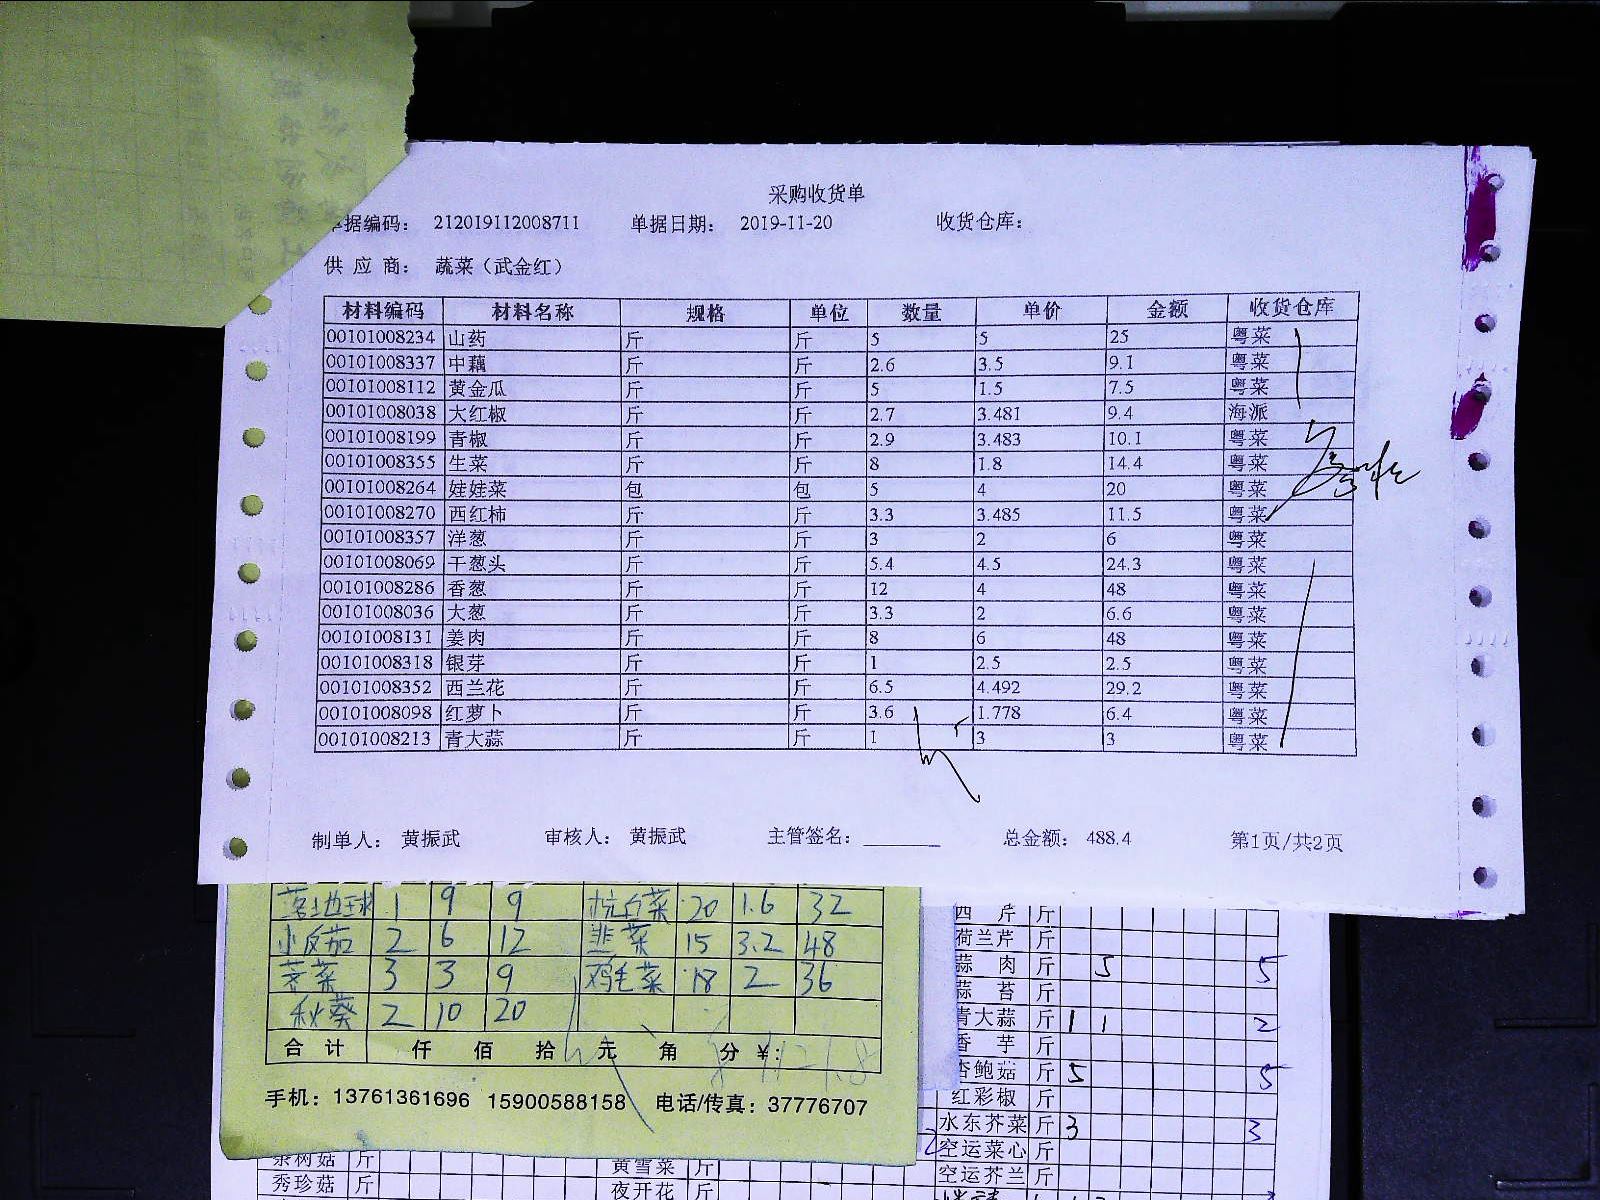 采购收货单
单据编码： 212019112008711 单据日期： 2019-11-20 收货仓库：
供 应 商： 蔬菜（武金红）
材料编码 材料名称 规格 单位 数量 单价 金额 收货仓库
00101008234 山药 斤 斤 5 5 25 粤菜
00101008337 中藕 斤 斤 2.6 3.5 9.1 粤菜
00101008112 黄金瓜 斤 斤 5 1.5 7.5 粤菜
00101008038 大红椒 斤 斤 2.7 3.481 9.4 海派
00101008199 青椒 斤 斤 2.9 3.483 10.1 粤菜
00101008355 生菜 斤 斤 8 1.8 14.4 粤菜
00101008264 娃娃菜 包 包 5 4 20 粤菜
00101008270 西红柿 斤 斤 3.3 3.485 11.5 粤菜
00101008357 洋葱 斤 斤 3 2 6 粤菜
00101008069 干葱头 斤 斤 5.4 4.5 24.3 粤菜
00101008286 香葱 斤 斤 12 4 48 粤菜
00101008036 大葱 斤 斤 3.3 2 6.6 粤菜
00101008131 姜肉 斤 斤 8 6 48 粤菜
00101008318 银芽 斤 斤 1 2.5 2.5 粤菜
00101008352 西兰花 斤 斤 6.5 4.492 29.2 粤菜
00101008098 红萝卜 斤 斤 3.6 1.778 6.4 粤菜
00101008213 青大蒜 斤 斤 1 3 3 粤菜
制单人： 黄振武 审核人： 黄振武 主管签名： 总金额： 488.4 第1页/共2页
落地球 1 9 9 杭白菜 20 1.6 32
小反茄 2 6 12 韭菜 15 3.2 48
荠菜 3 3 9 鸡毛菜 18 2 36
秋葵 2 10 20
合 计 仟 佰 拾 元 角 分 ¥:
手机：13761361696 15900588158 电话/传真：37776707
西 芹 斤
荷兰芹 斤
蒜 肉 斤 5 5
蒜 苔 斤
青大蒜 斤 1 1 2
香 芋 斤
杏鲍菇 斤 5 5
红彩椒 斤
水东芥菜 斤 3 3
空运菜心 斤
空运芥兰 斤
茶树菇 斤 黄雪菜 斤
秀珍菇 斤 夜开花 斤